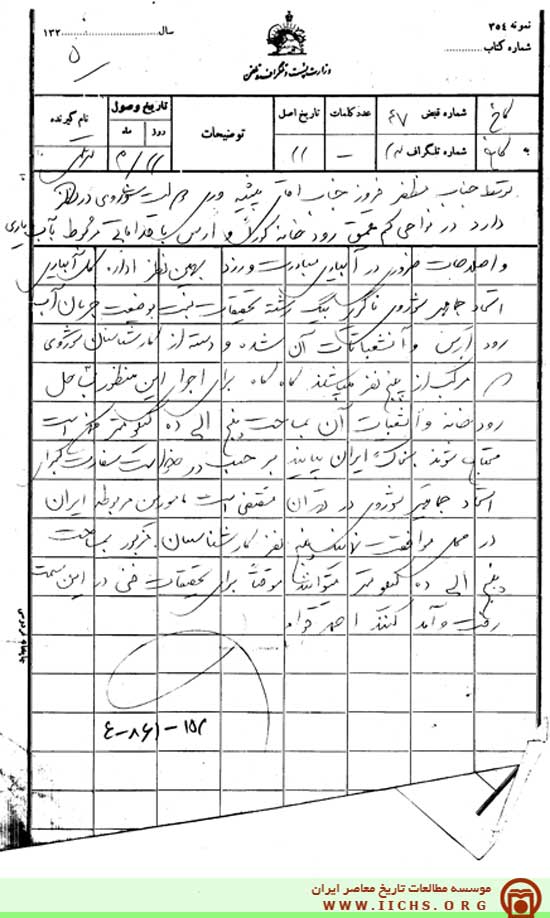 نمونه ۳۵۴
شماره کتاب
سال ۱۳۲
۵
وزارت پست و تلگراف و تلفن
کاخ
شماره قبض ۴۷
عدد کلمات
تاریخ اصل
توضیحات
تاریخ وصول
نام گیرنده
به
شماره تلگراف
روز
ماه
توسط جناب مظفر فیروز جناب آقای پیشه وری دولت شوروی در نظر
دارد در نواحی کم عمق رودخانه کورا و ارس باقداماتی مربوط بآبیاری
و اصلاحات ضروری در آبیاری مبادرت ورزد بهمین نظر اداره کل آبیاری
اتحاد جماهیر شوروی ناگزیر بیک رشته تحقیقات نسبت بوضعیت جریان آب
رود ارس و انشعابات آن شده و دسته از کارشناسان شوروی
مرکب از پنج نفر میباشند گاه گاه برای اجرای این منظور بساحل
رودخانه و انشعابات آن بمساحت پنج الی ده کیلومتر ممکن است
محتاج شوند بخاک ایران بیایند بر حسب درخواست سفارت کبرای
اتحاد جماهیر شوروی در تهران مقتضی است مامورین مربوطه ایران
در محل موافقت نمایند پنج نفر کارشناسان مزبور بمساحت
پنج الی ده کیلومتر بتوانند موقتاً برای تحقیقات فنی در این سمت
رفت و آمد کنند احمد قوام
موسسه مطالعات تاریخ معاصر ایران
WWW.IICHS.ORG